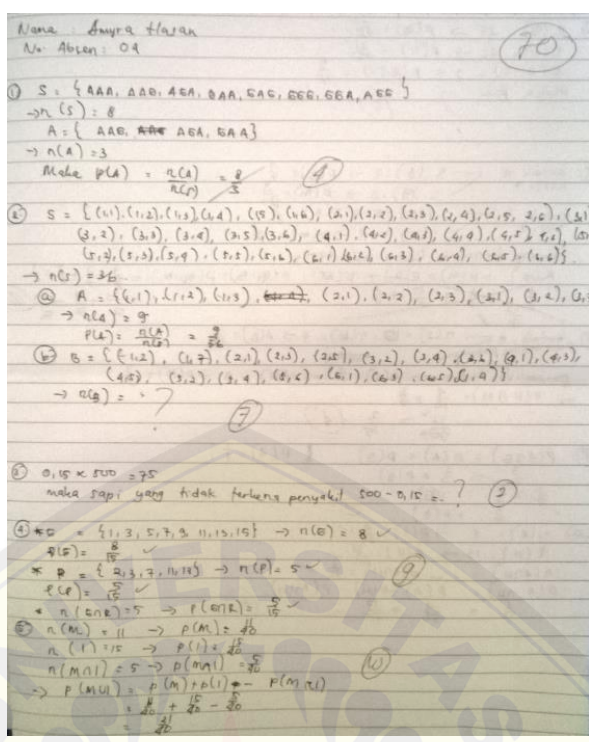 Nama : Amyra Hasan
No Absen : 04
70
① S = { AAA, AAG, AGA, GAA, GAG, GGG, GGA, AGG }
→ n (S) = 8
A = { AAG, AGA, GAA }
→ n (A) = 3
Maka P(A) = n(A)/n(S) = 8/3
4
② S = { (1,1), (1,2), (1,3), (1,4), (1,5), (1,6), (2,1), (2,2), (2,3), (2,4), (2,5, 2,6), (3,1)
(3,2), (3,3), (3,4), (3,5), (3,6), (4,1), (4,2), (4,3), (4,4), (4,5)
(5,2), (5,3), (5,4), (5,5), (5,6), (6,1) (6,2) (6,3), (6,4), (6,5), (6,6) }
→ n(S) = 36
ⓐ A = { (1,1), (1,2), (1,3), (2,1), (2,2), (2,3), (3,1), (3,2),
→ n(A) = 9
P(A) = n(A)/n(S) = 9/36
ⓑ B = { (1,2), (2,1), (2,3), (2,5), (3,2), (3,4), (3,6), (4,1), (4,3),
(4,5), (5,2), (5,4), (5,6), (6,1), (6,3), (6,5), (1,4) }
→ n(B) = . ?
7
③ 0,15 x 500 = 75
maka sapi yang tidak terkena penyakit 500 - 0,15 = . ? 2
④ * = { 1, 3, 5, 7, 9, 11, 13, 15 } → n(G) = 8 ✓
P(G) = 8/15 ✓
* P = { 2, 3, 7, 11, 13 } → n(P) = 5 ✓
P(P) = 5/15 ✓ 9
* = 5 → = 5/15 ✓
⑤ n (M) = 11 → P(M) = 11/40
n (I) = 15 → P(I) = 15/40
n(M∩I) = 5 → P(M∩I) = 5/40
10
→ P(M∪I) = P(M) + P(I) - P(M∩I)
= 11/40 + 15/40 - 5/40
= 21/40
ERSITA